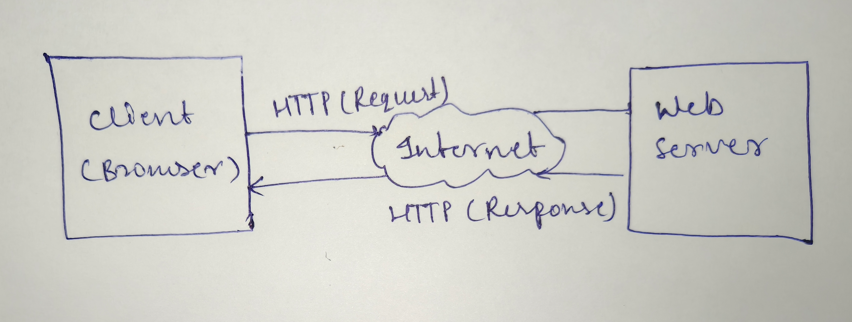 Client
(Browser)
HTTP (Request)
Internet
HTTP (Response)
Web
Server